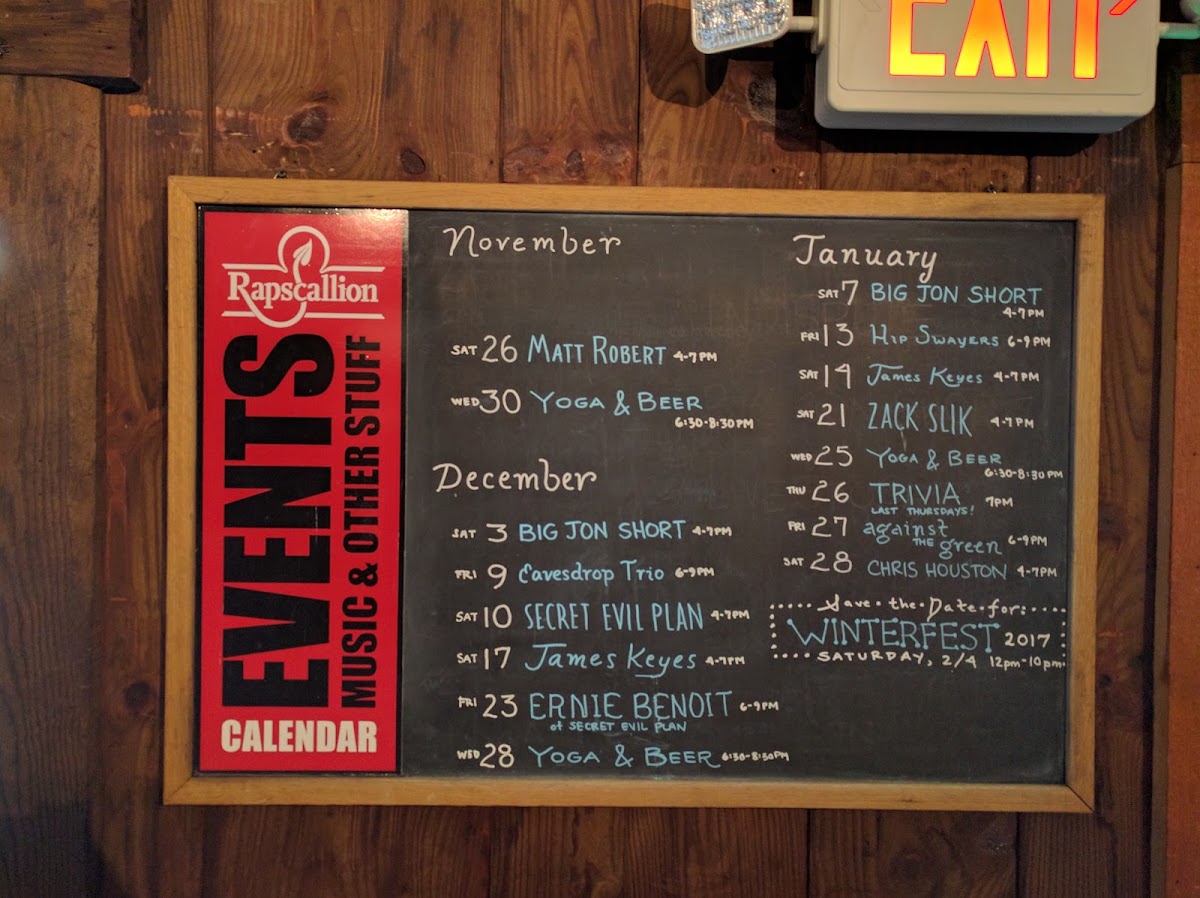 EXIT
Rapscallion
EVENTS
MUSIC & OTHER STUFF
CALENDAR
November
SAT 26 MATT ROBERT 4-7PM
WED 30 YOGA & BEER
6:30-8:30PM
December
SAT 3 BIG JON SHORT 4-7PM
FRI 9 Eavesdrop Trio 6-9PM
SAT 10 SECRET EVIL PLAN 4-7PM
SAT 17 James Keyes 4-7PM
FRI 23 ERNIE BENOIT 6-9PM
of SECRET EVIL PLAN
WED 28 YOGA & BEER 6:30-8:30PM
January
SAT 7 BIG JON SHORT
4-7PM
FRI 13 HIP SWAYERS 6-9PM
SAT 14 James Keyes 4-7PM
SAT 21 ZACK SLIK 4-7PM
WED 25 YOGA & BEER
6:30-8:30PM
THU 26 TRIVIA 7PM
LAST THURSDAYS!
FRI 27 against
THE green 6-9PM
SAT 28 CHRIS HOUSTON 4-7PM
Save·the·Date·for:
WINTERFEST 2017
SATURDAY, 2/4 12pm-10pm